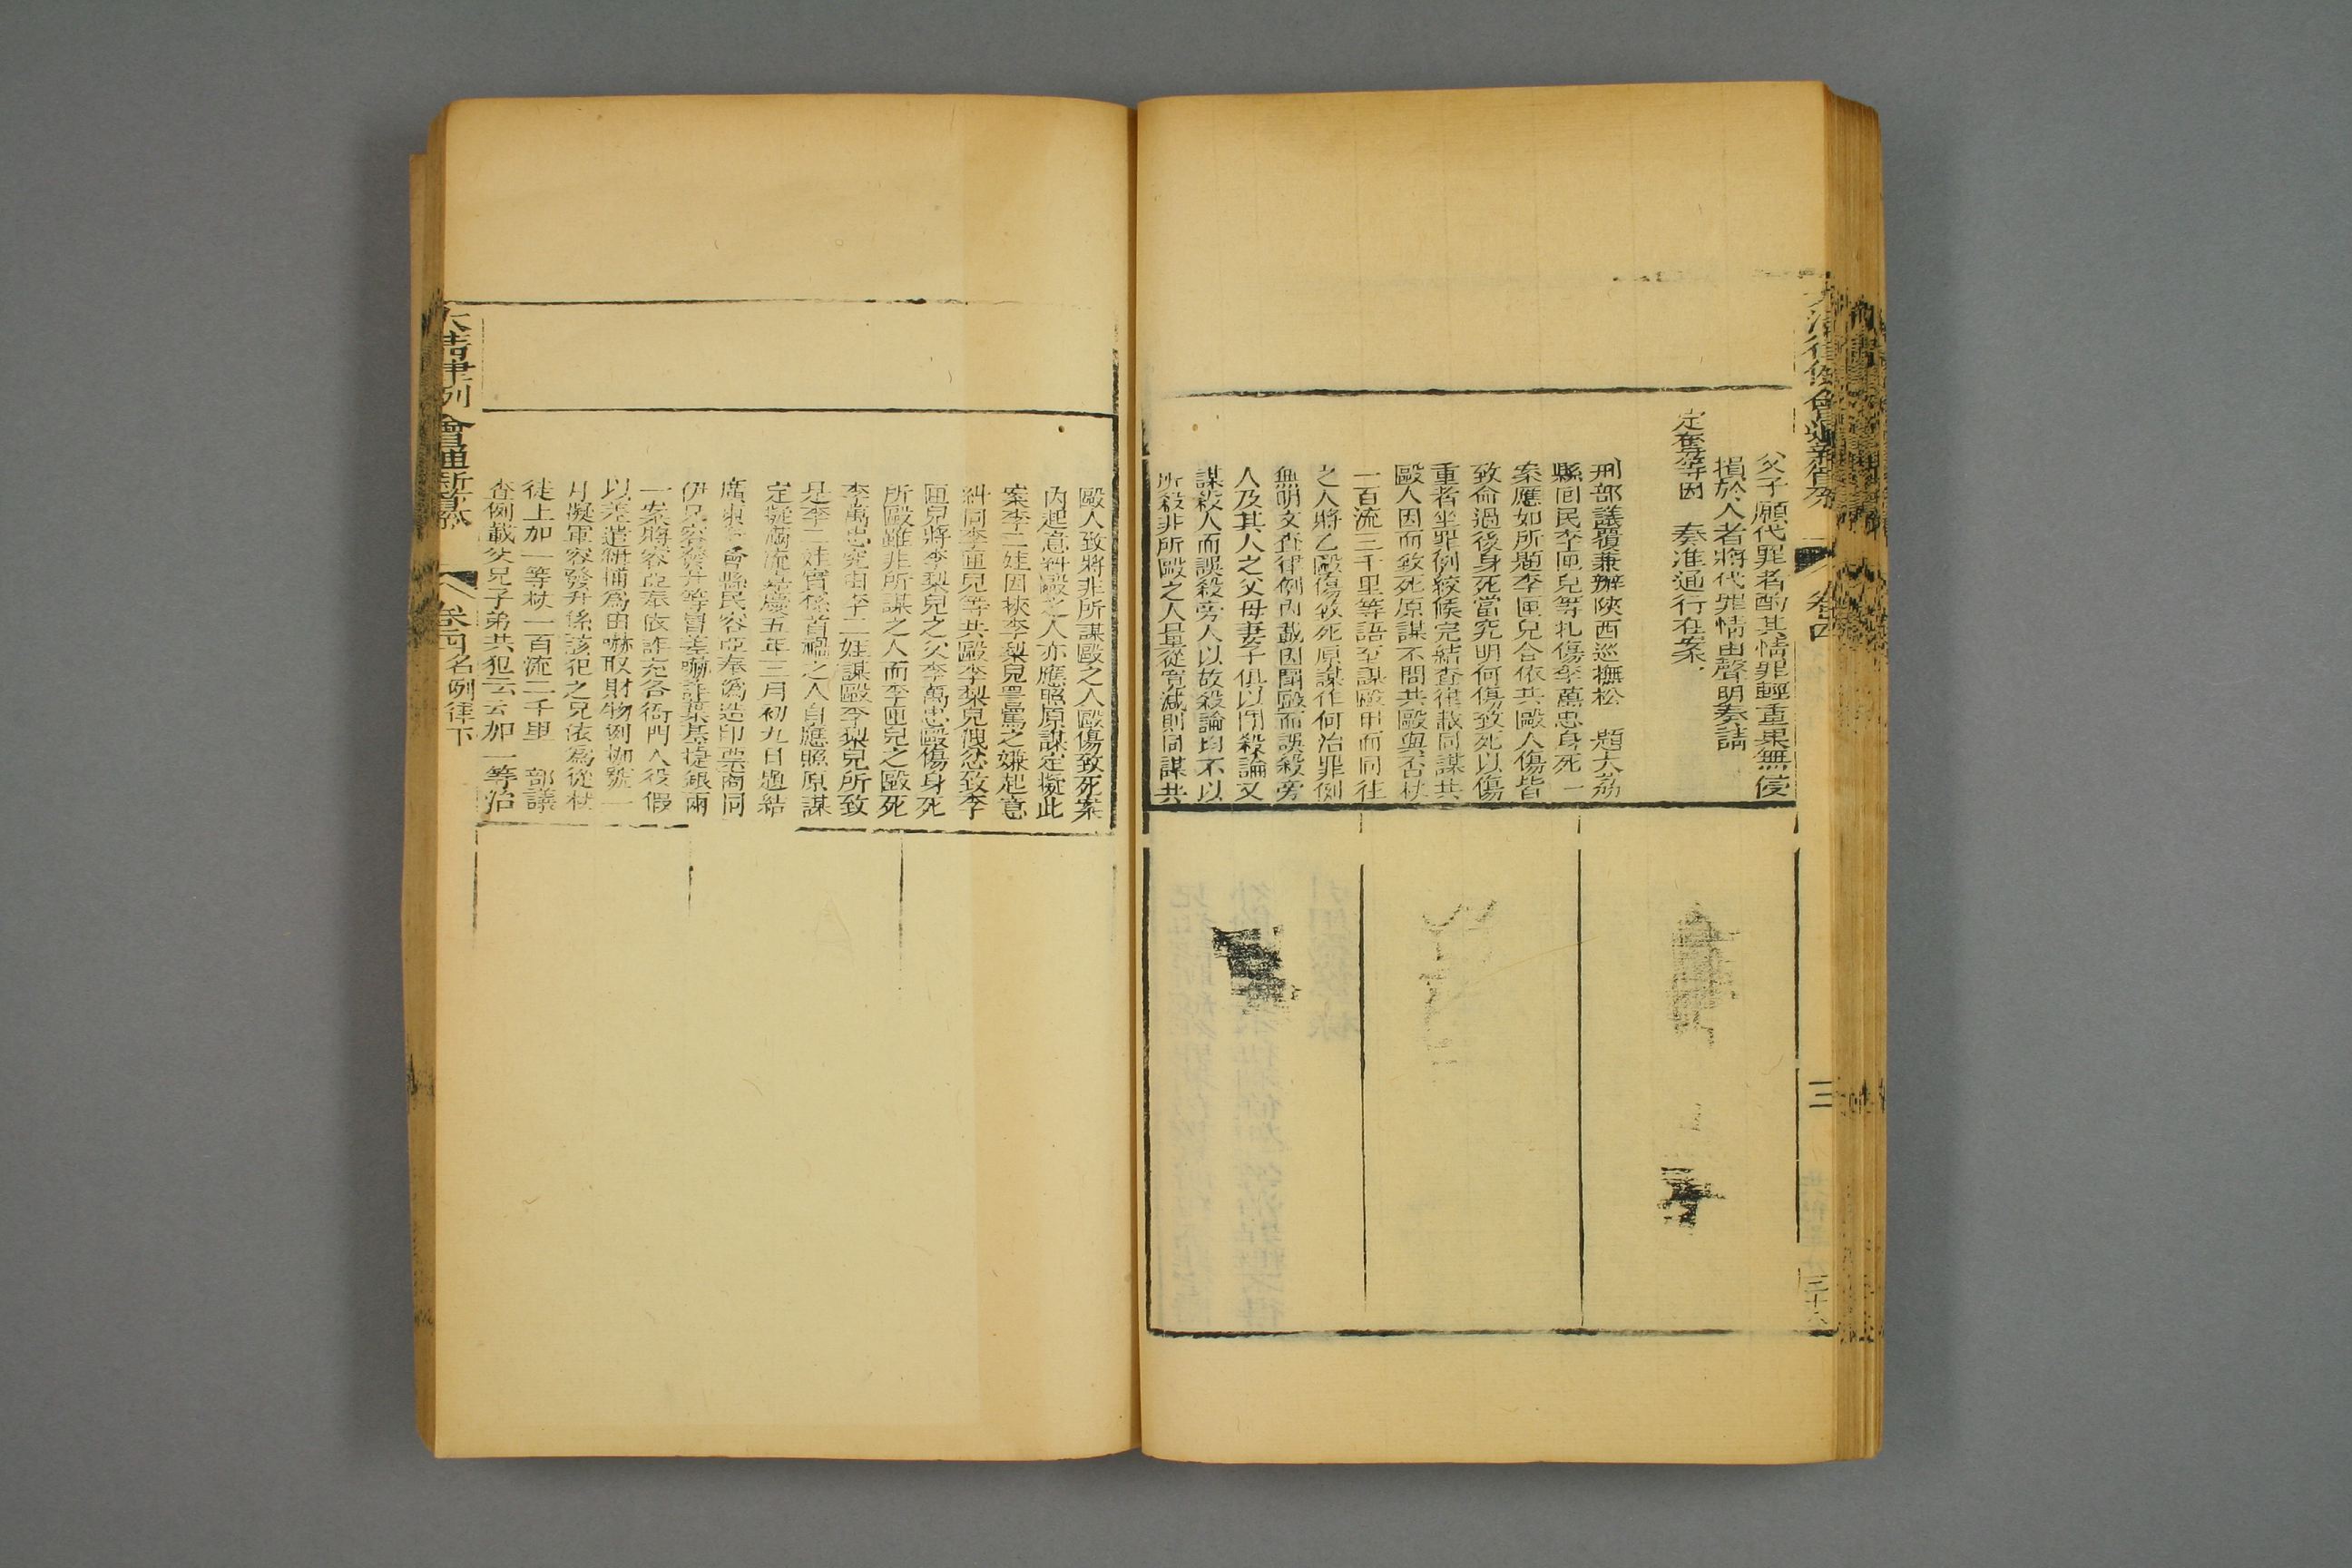 父子願代罪者酌其情罪輕重果無侵
損於人者將代罪情由聲明奏請
定奪等因 奏准通行在案
刑部議覆兼辦陝西巡撫松 題大荔
縣回民李匣兒等扎傷李萬忠身死一
案應如所題李匣兒合依共毆人傷皆
致命過後身死當究明何傷致死以傷
重者坐罪例絞候完結查律載同謀共
毆人因而致死原謀不問共毆與否杖
一百流三千里等語至謀毆甲而同往
之人將乙毆傷致死原謀作何治罪例
無明文查律例內載因鬬毆而誤殺旁
人及其人之父母妻子俱以鬬殺論又
謀殺人而誤殺旁人以故殺論均不以
所殺非所毆之人量從寬減則同謀共
三十六
毆人致將非所謀毆之人毆傷致死案
內起意糾毆之人亦應照原謀定擬此
案李二娃因挾李梨兒詈罵之嫌起意
糾同李匣兒等共毆李梨兒洩忿致李
匣兒將李梨兒之父李萬忠毆傷身死
所毆雖非所謀之人而李匣兒之毆死
李萬忠究由李二娃謀毆李梨兒所致
是李二娃實係首禍之人自應照原謀
定擬滿流嘉慶五年三月初九日題結
廣東 會縣民容亞奉偽造印票商同
伊兄容發升等冒差嚇詐葉基捷銀兩
一案將容亞奉依詐充各衙門人役假
以差遣緝捕為由嚇取財物例枷號一
月擬軍容發升係該犯之兄法為從杖
徒上加一等杖一百流二千里 部議
查例載父兄子弟共犯云云加一等治
大清律例會通新纂 卷四名例律下